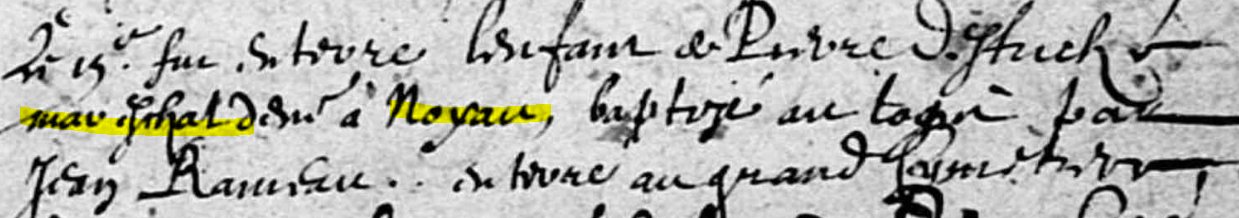 Le 15e. fut enterré l'enfant de Pierre
mareschal dem.t à Noyau, baptizé au logis par
Jean Rameau.. enterré au grand Cymetiere